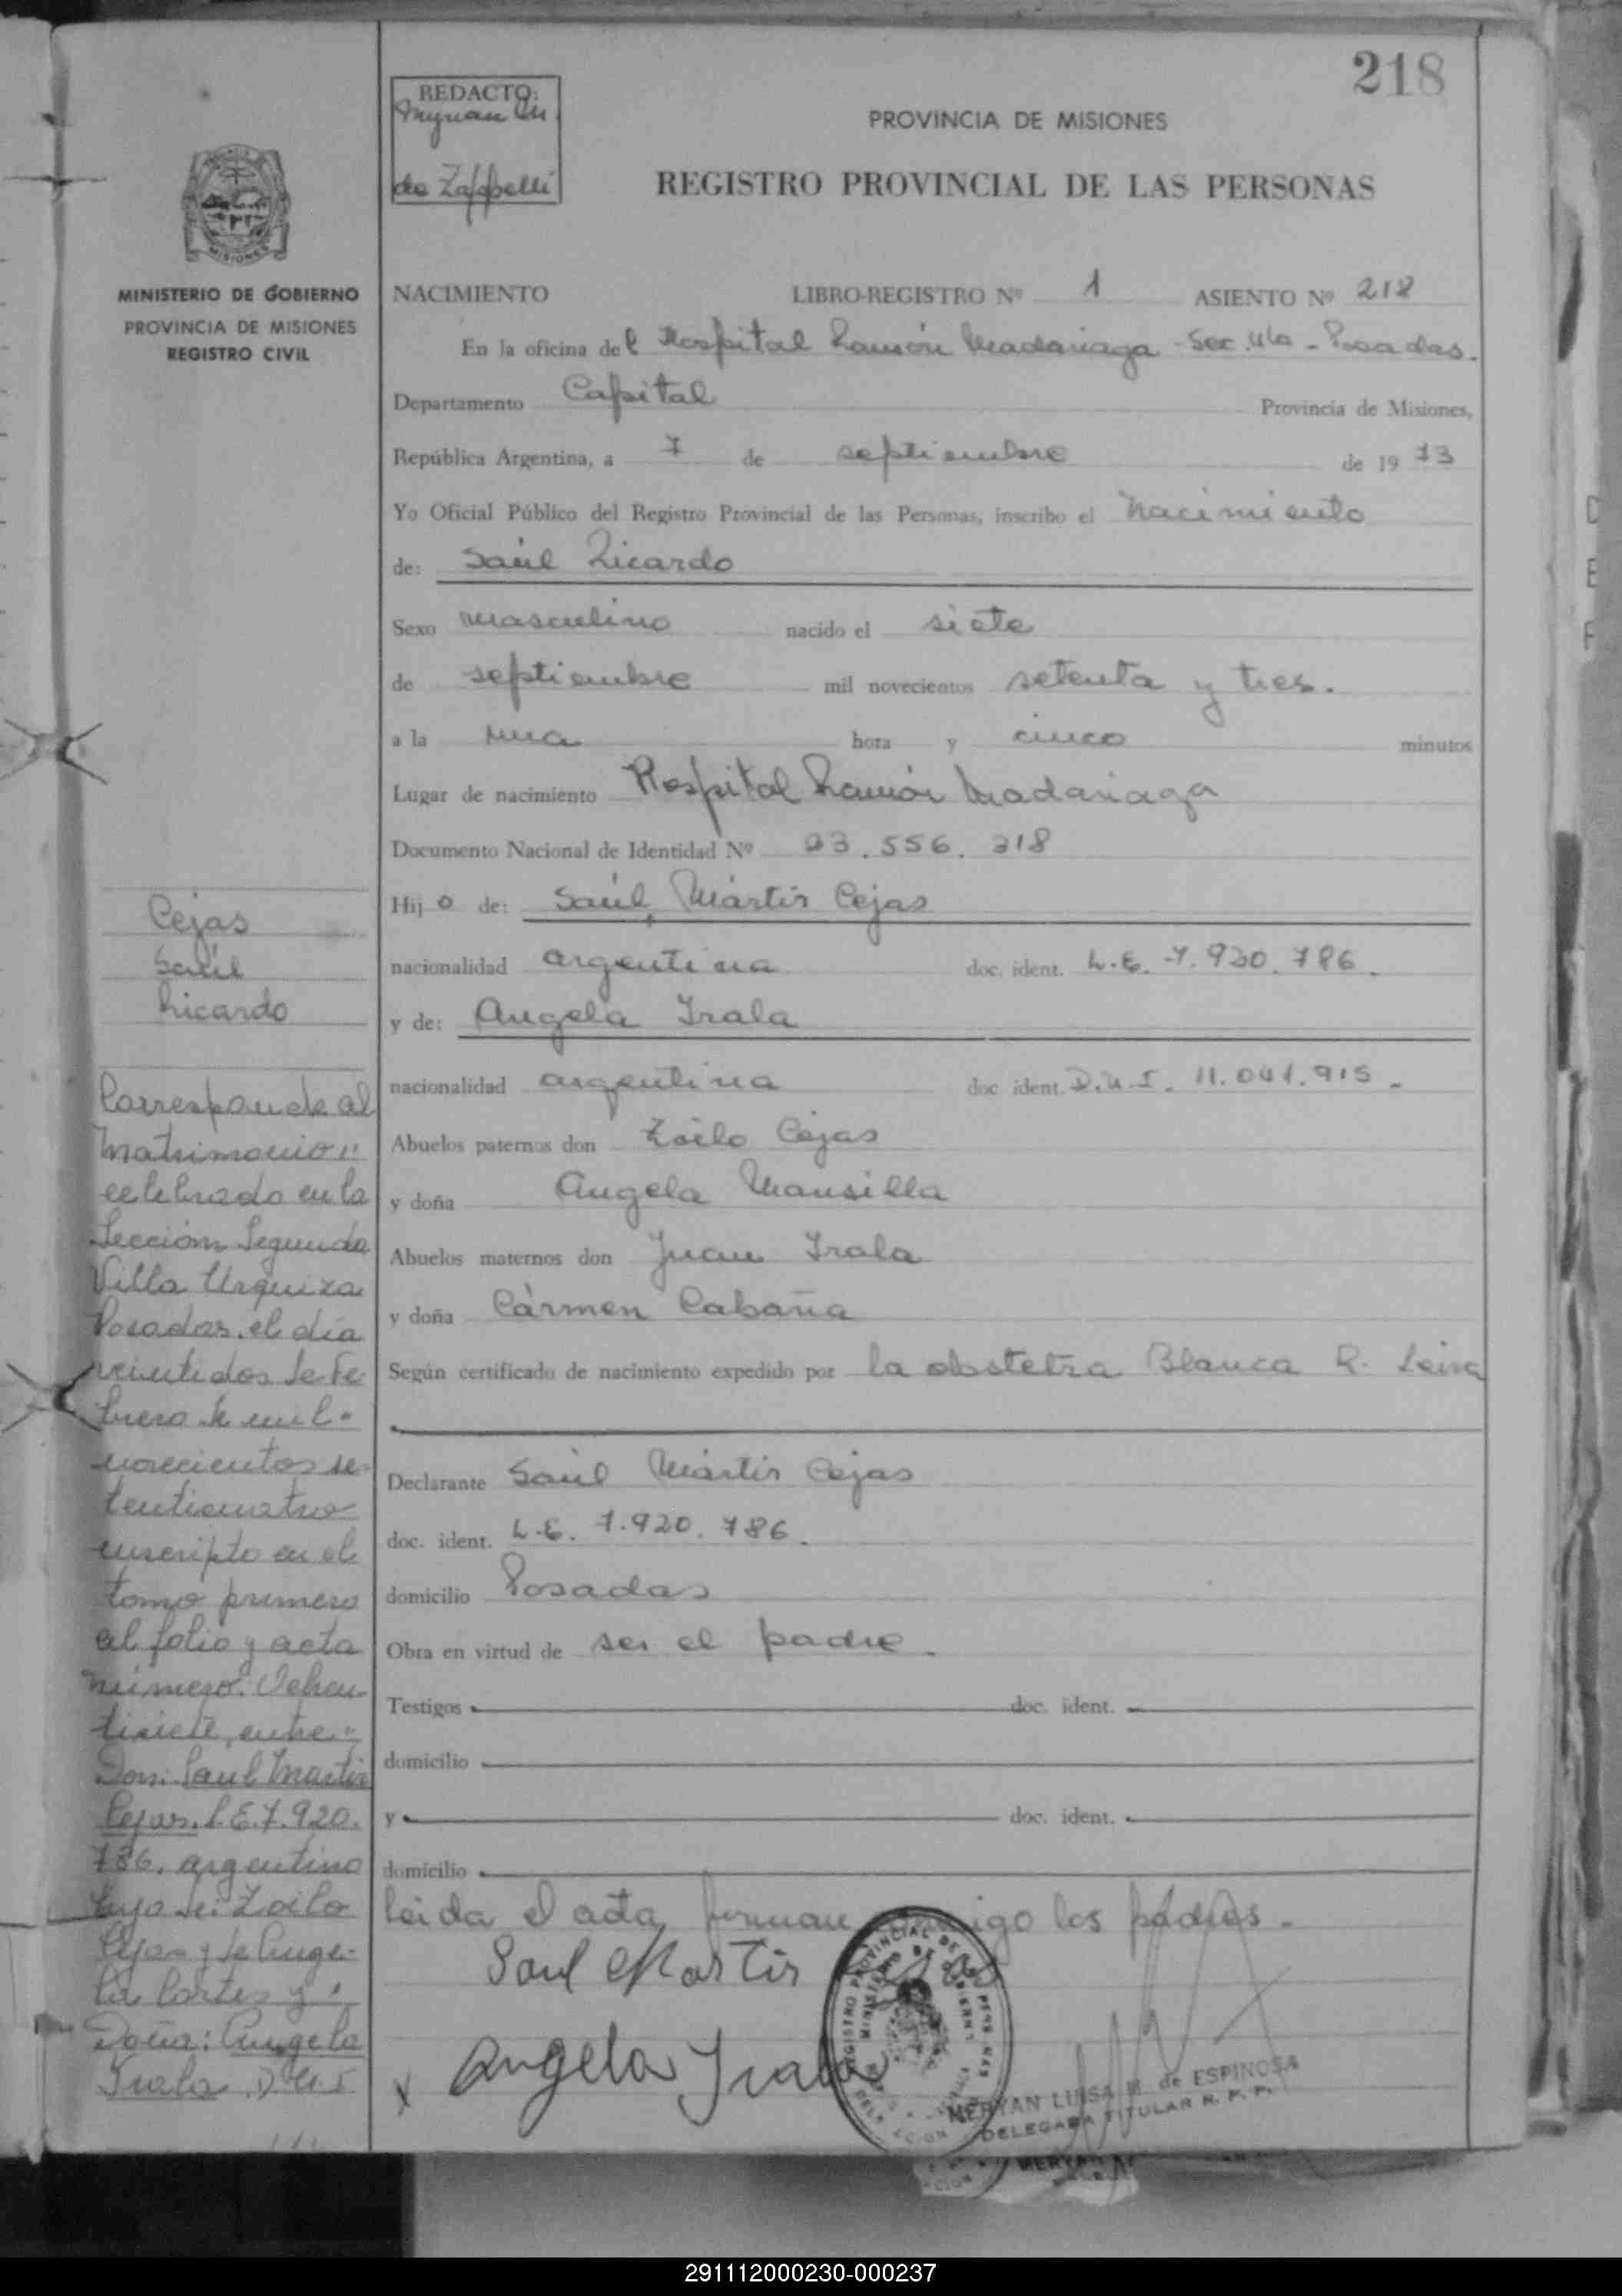 218
REDACTO:
Myrian M.
de Zappelli
PROVINCIA DE MISIONES
REGISTRO PROVINCIAL DE LAS PERSONAS
MISIONES
MINISTERIO DE GOBIERNO
PROVINCIA DE MISIONES
REGISTRO CIVIL
NACIMIENTO LIBRO-REGISTRO Nº 1 ASIENTO Nº 218
En la oficina del Hospital Ramón Madariaga - Sec. 4ta - Posadas.
Departamento Capital Provincia de Misiones,
República Argentina, a 7 de septiembre de 19 73
Yo Oficial Público del Registro Provincial de las Personas, inscribo el nacimiento
de: Saúl Ricardo
Sexo masculino nacido el siete
de septiembre mil novecientos setenta y tres.
a la una hora y cinco minutos
Lugar de nacimiento Hospital Ramón Madariaga
Documento Nacional de Identidad Nº 23.556.218
Hij o de: Saúl Mártir Cejas
nacionalidad argentina doc. ident. L.E. 7.920.786.
y de: Angela Irala
nacionalidad argentina doc ident. D.N.I. 11.041.915.
Abuelos paternos don Zoilo Cejas
y doña Angela Mansilla
Abuelos maternos don Juan Irala
y doña Cármen Cabaña
Según certificado de nacimiento expedido por la obstetra Blanca R. Leiva
Declarante Saúl Mártir Cejas
doc. ident. L.E. 7.920.786.
domicilio Posadas
Obra en virtud de ser el padre.
Testigos doc. ident.
domicilio
y doc. ident.
domicilio
leida el acta, firman conmigo los padres.
Saul Martir Cejas
x Angela Irala
MERYAN LUISA M. de ESPINOSA
DELEGADA TITULAR R. P. P.
Cejas
Saúl
Ricardo
Corresponde al
Matrimonio "
celebrado en la
Sección Segunda
Villa Urquiza
Posadas, el día
veintidos de Fe
brero de mil-
novecientos se-
tenticuatro
inscripto en el
tomo primero
al folio y acta
número. Ochen-
tisiete, entre:
Don: Saul Martir
Cejas. L.E. 7.920.
786. argentino
hijo de: Zoilo
Cejas y de Ange-
la Cortes y
Doña: Angela
Irala D.N.I
291112000230-000237